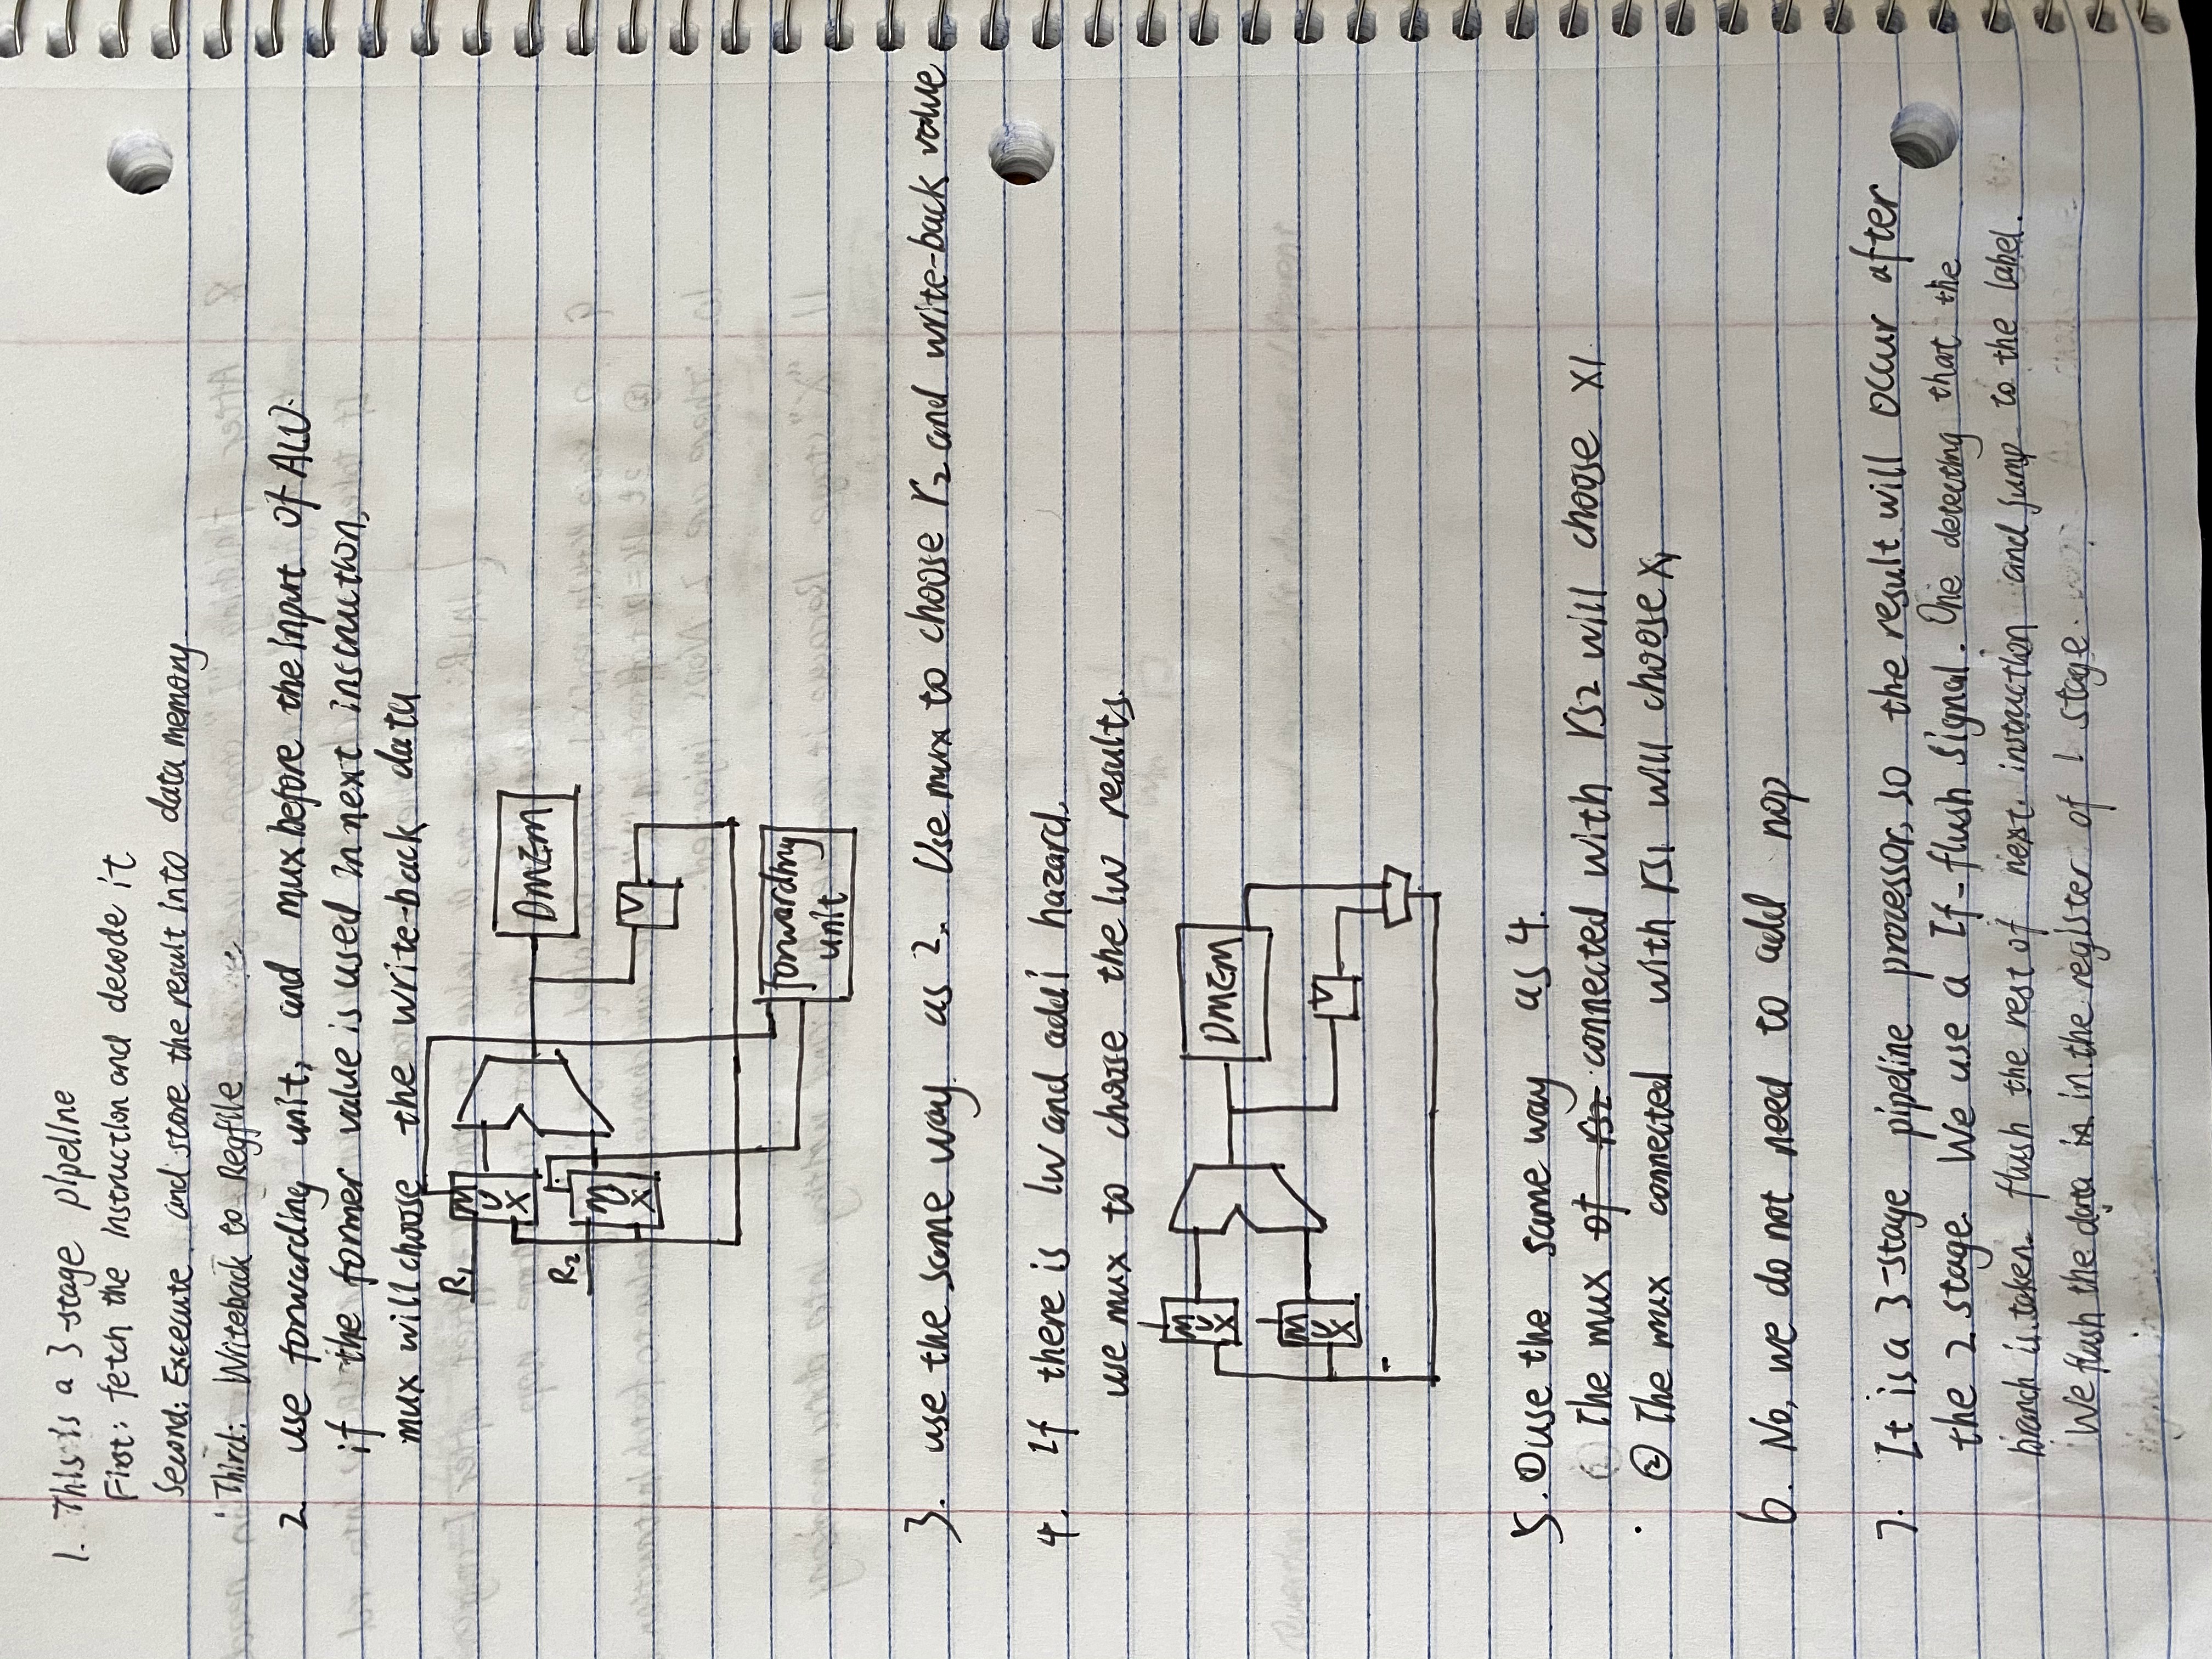 1. This is a 3-stage pipeline
First: fetch the instruction and decode it.
Second: Excecute. and store the result into data memory
Third: Writeback to Regfile
2 use forwarding unit, and mux before the input of ALU.
if the former value is used in next instruction,
mux will choose the write-back data
R1
MUX
R2
MUX
DMEM
forwarding
unit
3. use the same way. as 2. Use mux to choose r2 and write-back value
4. If there is lw and addi hazard.
use mux to choose the lw results.
MUX
MUX
DMEM
5. ① use the same way as 4.
The mux of rs2 connected with rs2 will choose x1
② The mux connected with rs1 will choose x1
6. No, we do not need to add nop
7. It is a 3-stage pipeline processor, so the result will occur after
the 2 stage. We use a If-flush signal. One detecting that the
branch is taken. flush the rest of next instruction and jump to the label.
We flash the data in in the register of 1 stage.